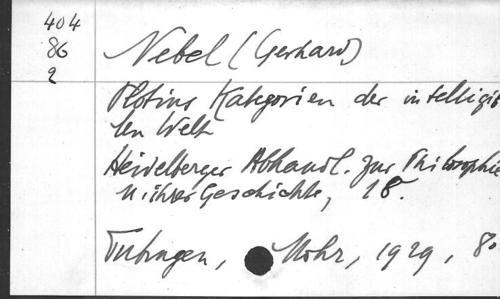 404
86
2
Nebel (Gerhard)
Plotins Kategorien der intelligib
len Welt
Heidelberger Abhandl. zur Philosophie
u. ihrer Geschichte, 18.
Tubingen, Mohr, 1929, 8o